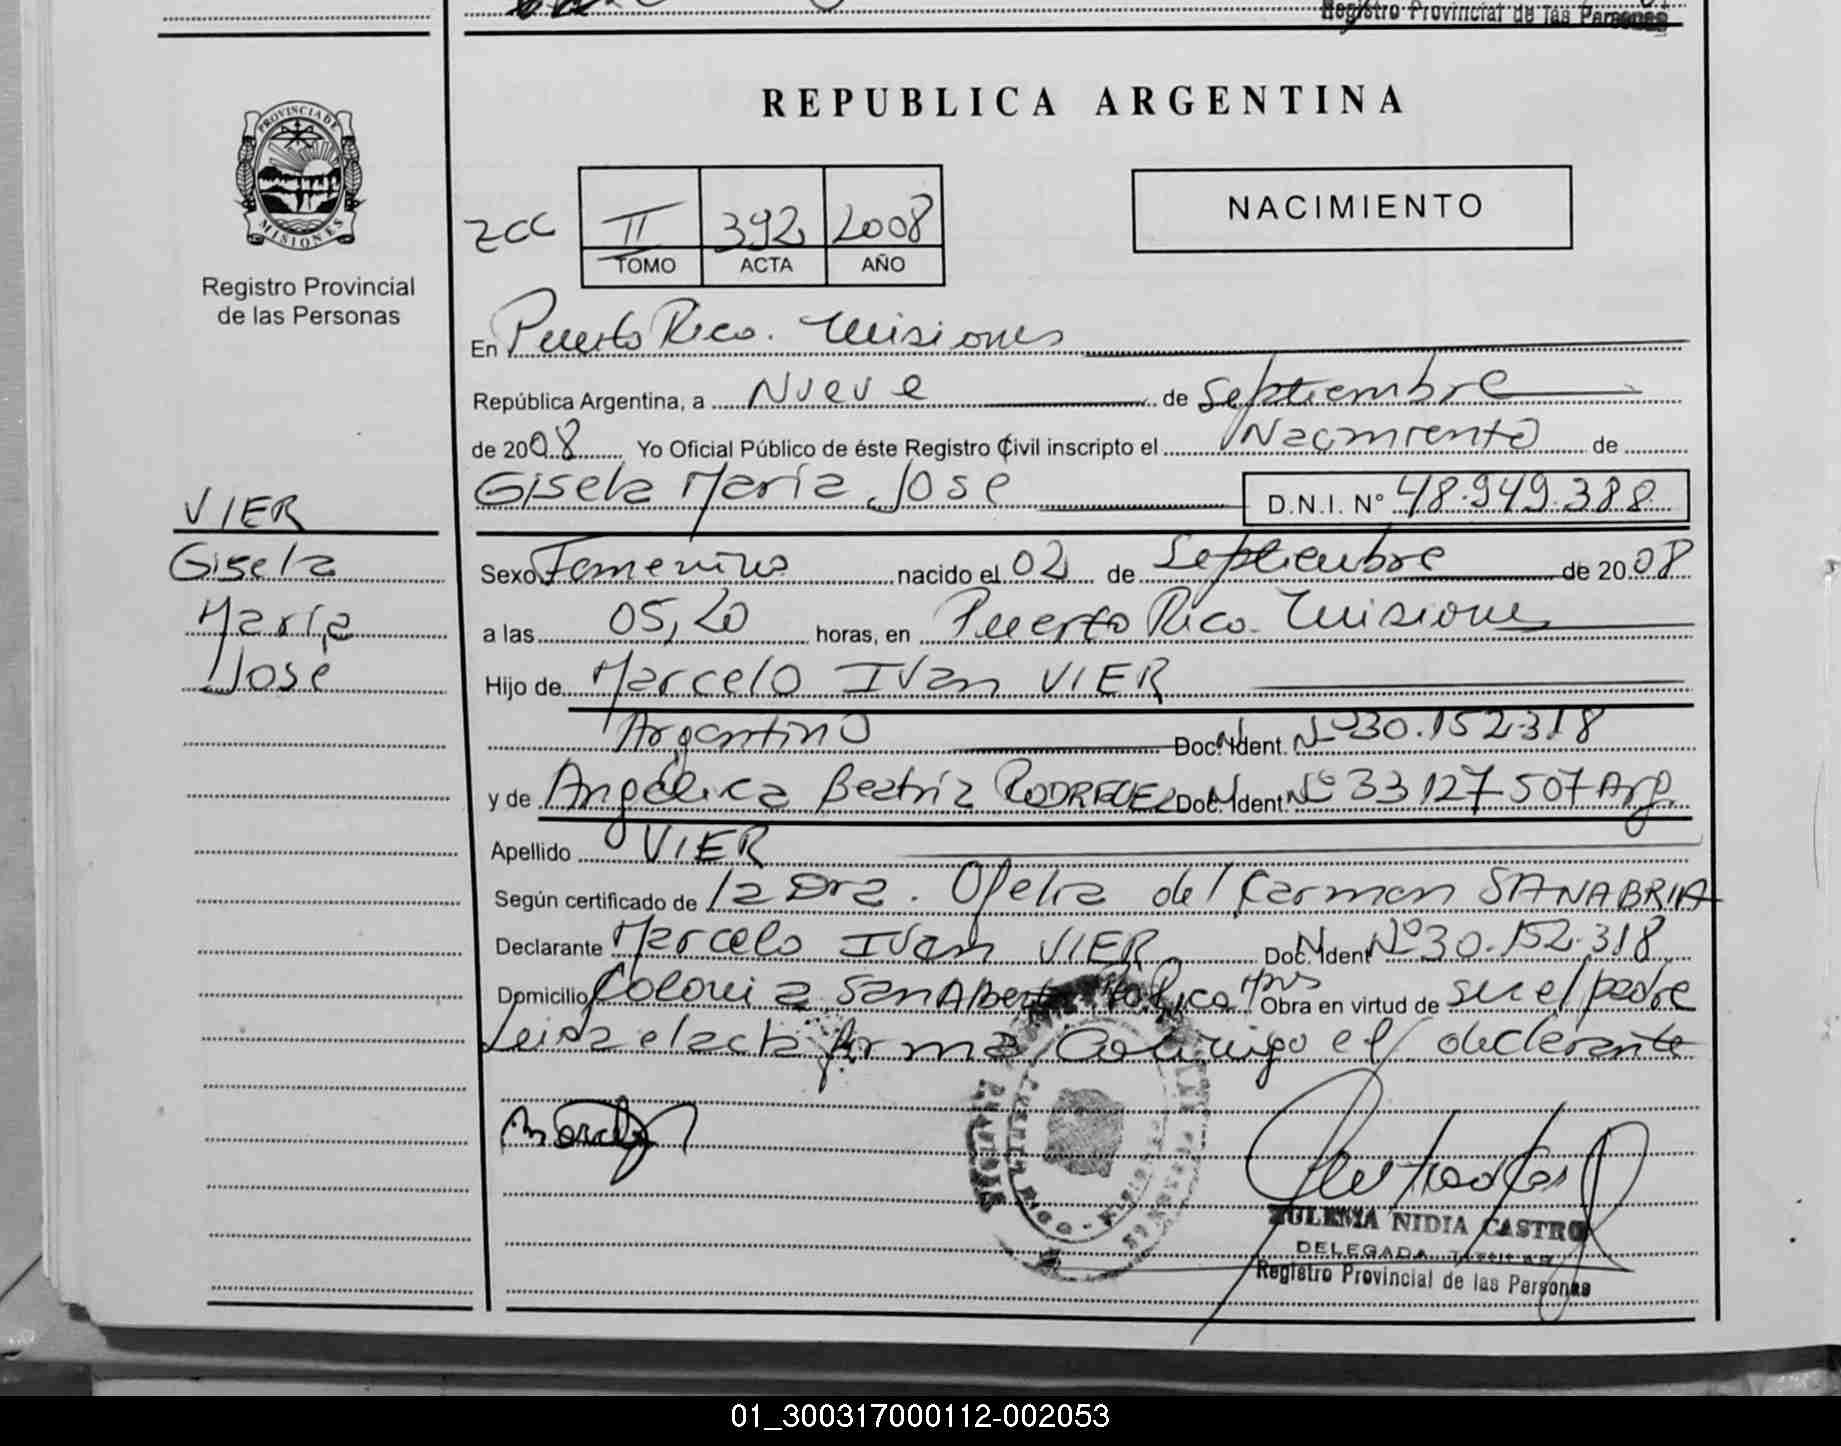 Registro Provincial de las Personas
REPUBLICA ARGENTINA
PROVINCIA DE
MISIONES
NACIMIENTO
ZCC II 392 2008
TOMO ACTA AÑO
Registro Provincial
de las Personas
En Puerto Rico. Misiones
República Argentina, a Nueve de Septiembre
de 2008 Yo Oficial Público de éste Registro Civil inscripto el Nacimiento de
Gisela María José D.N.I. N° 48.949.388
VIER
Gisela
María
José
Sexo Femenino nacido el 02 de Septiembre de 2008
a las 05,20 horas, en Puerto Rico. Misiones
Hijo de Marcelo Ivan VIER
Argentino Doc. Ident. N° 30.152.318
y de Angélica Beatriz RODRIGUEZ Doc. Ident. N° 33 127 507 Arg.
Apellido VIER
Según certificado de la Dra. Ofelia del Carmen SANABRIA
Declarante Marcelo Ivan VIER Doc. Ident N° 30.152.318
Domicilio Colonia San Alberto Pto Rico Mns Obra en virtud de ser el padre
Leida el acta firma Conmigo el declarante
ZULEMA NIDIA CASTRO
DELEGADA
Registro Provincial de las Personas
01_300317000112-002053